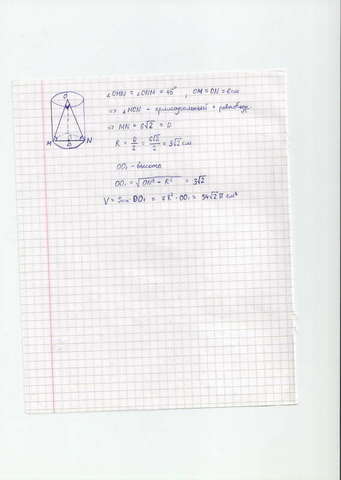 O
M
N
∠OMN = ∠ONM = 45°, OM = ON = 6 см
⇒ ∠MON - прямоугольный и равнобедр.
⇒ MN = 6√2 = D
R = D/2 = 6√2/2 = 3√2 см
OO₁ - высота
OO₁ = √(ON² - R²) = 3√2
V = Sосн · OO₁ = πR² · OO₁ = 54√2 π см³